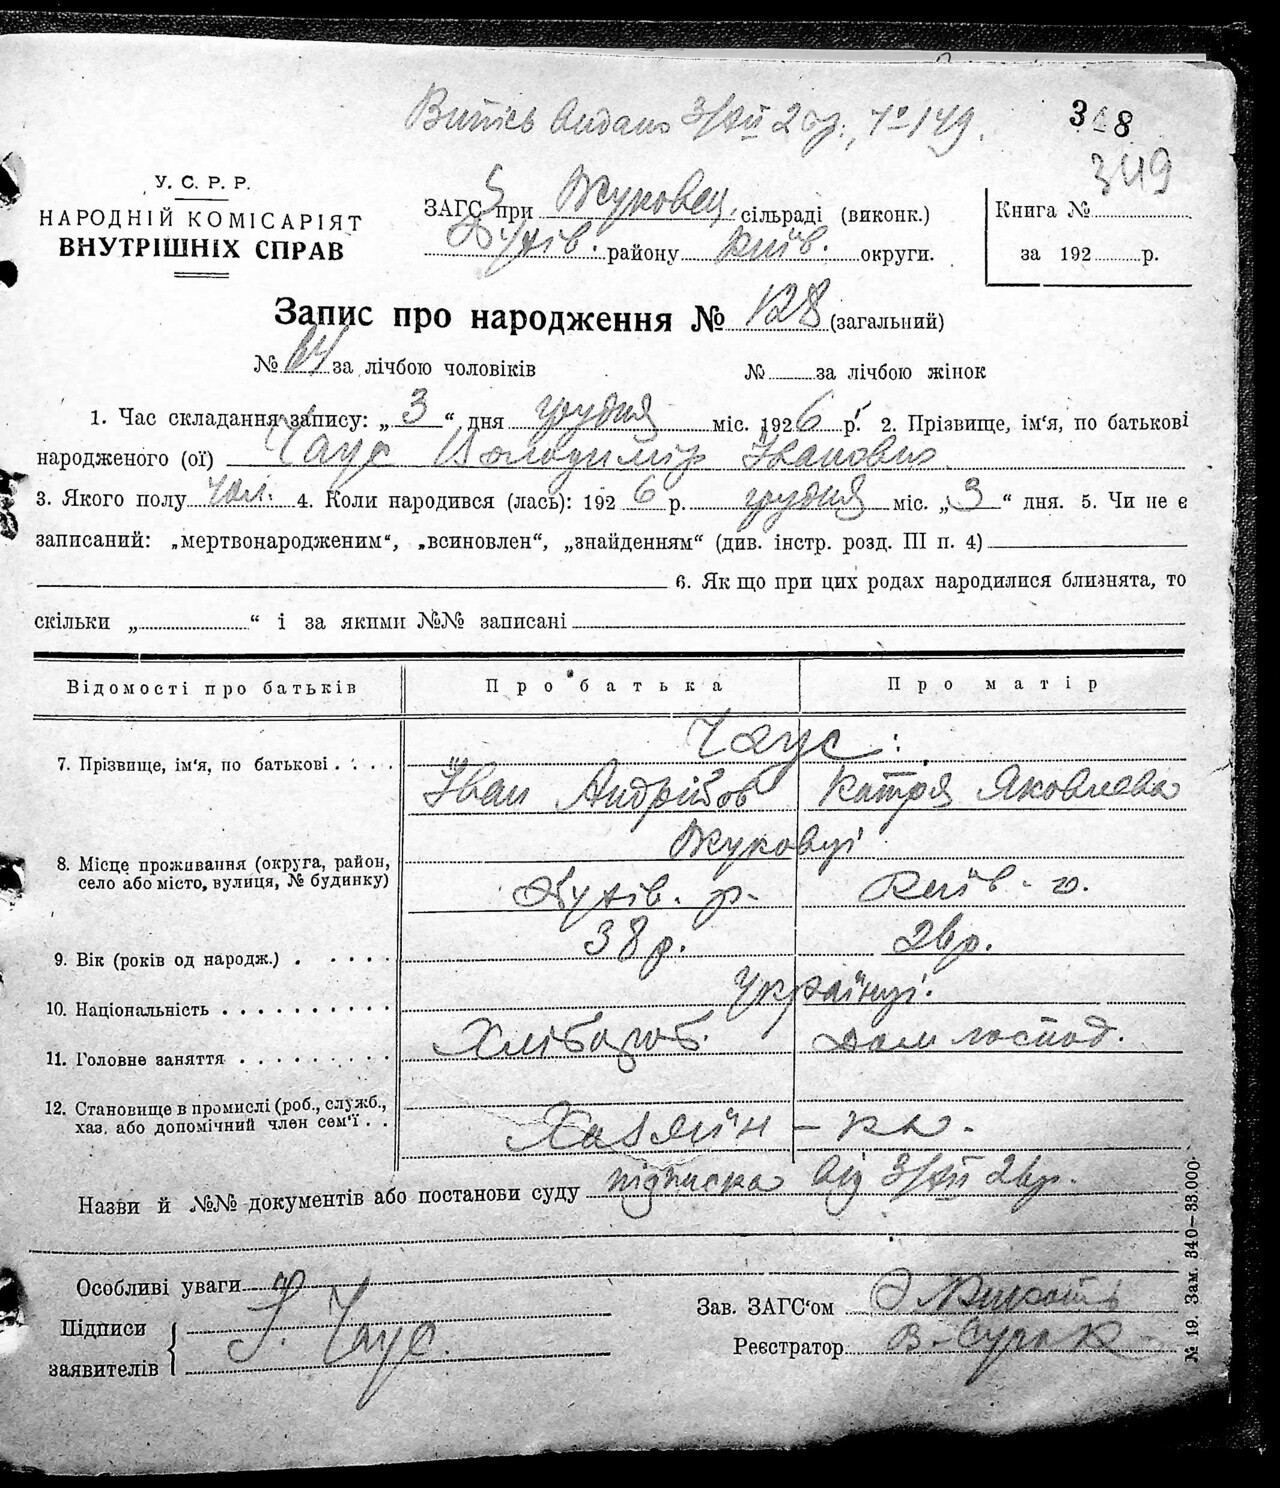 Витісь видано 3/XII 26р., № 149.
318
349
У. С. Р. Р.
НАРОДНІЙ КОМІСАРІЯТ
ВНУТРІШНІХ СПРАВ
ЗАГС при Жуковец. сільраді (виконк.)
Обухів. району Київ. округи.
Книга №
за 192 р.
Запис про народження № 128 (загальний)
№ 64 за лічбою чоловіків № за лічбою жінок
1. Час складання запису: „ 3 “ дня грудня міс. 1926 р. 2. Прізвище, ім'я, по батькові
народженого (ої) Чаус Володимір Іванович
3. Якого полу чол. 4. Коли народився (лась): 192 6 р. грудня міс. „ 3 “ дня. 5. Чи не є
записаний: „мертвонародженим“, „всиновлен“, „знайденням“ (див. інстр. розд. III п. 4)
6. Як що при цих родах народилися близнята, то
скільки „ “ і за якими №№ записані
Відомості про батьків Про батька Про матір
Чаус:
7. Прізвище, ім'я, по батькові
Іван Андрійов Катря Яковлева
Жуковці
8. Місце проживання (округа, район,
село або місто, вулиця, № будинку)
Обухів. р. Київ. о.
9. Вік (років од народж.) 38 р. 26 р.
10. Національність Українці.
11. Головне заняття Хлібороб. Дом господ.
12. Становище в промислі (роб., служб.,
хаз. або допомічний член сем'ї
Хазяїн - ка.
Назви й №№ документів або постанови суду підписка від 3/XII 26р.
Особливі уваги
Підписи
заявителів
І. Чаус.
Зав. ЗАГС'ом
Реєстратор В.
№ 19. Зам. 340—33.000.